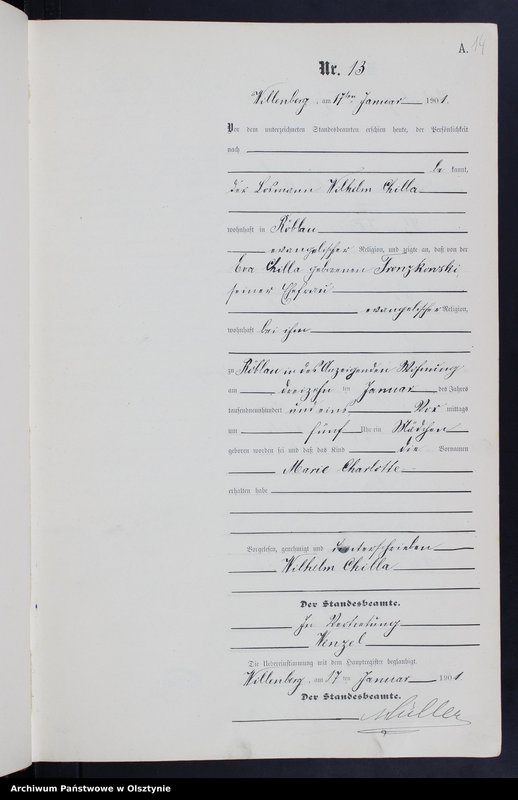 A. 14
Nr. 13
Willenberg, am 17ten Januar 1901.
Vor dem unterzeichneten Standesbeamten erschien heute, der Persönlichkeit
nach
be kannt,
der Losmann Wilhelm Chilla
wohnhaft in Röblau
evangelischer Religion, und zeigte an, daß von der
Eva Chilla geborenen Tronzkowski
seiner Ehefrau
evangelischer Religion,
wohnhaft bei ihm
zu Röblau in des Anzeigenden Wohnung
am dreizehn ten Januar des Jahres
tausendneunhundert und eins Vor mittags
um fünf Uhr ein Mädchen
geboren worden sei und daß das Kind die Vornamen
Marie Charlotte
erhalten habe
Vorgelesen, genehmigt und unterschrieben
Wilhelm Chilla
Der Standesbeamte.
In Vertretung
Wenzel
Die Uebereinstimmung mit dem Hauptregister beglaubigt.
Willenberg, am 17 ten Januar 1901.
Der Standesbeamte.
Müller
Archiwum Państwowe w Olsztynie